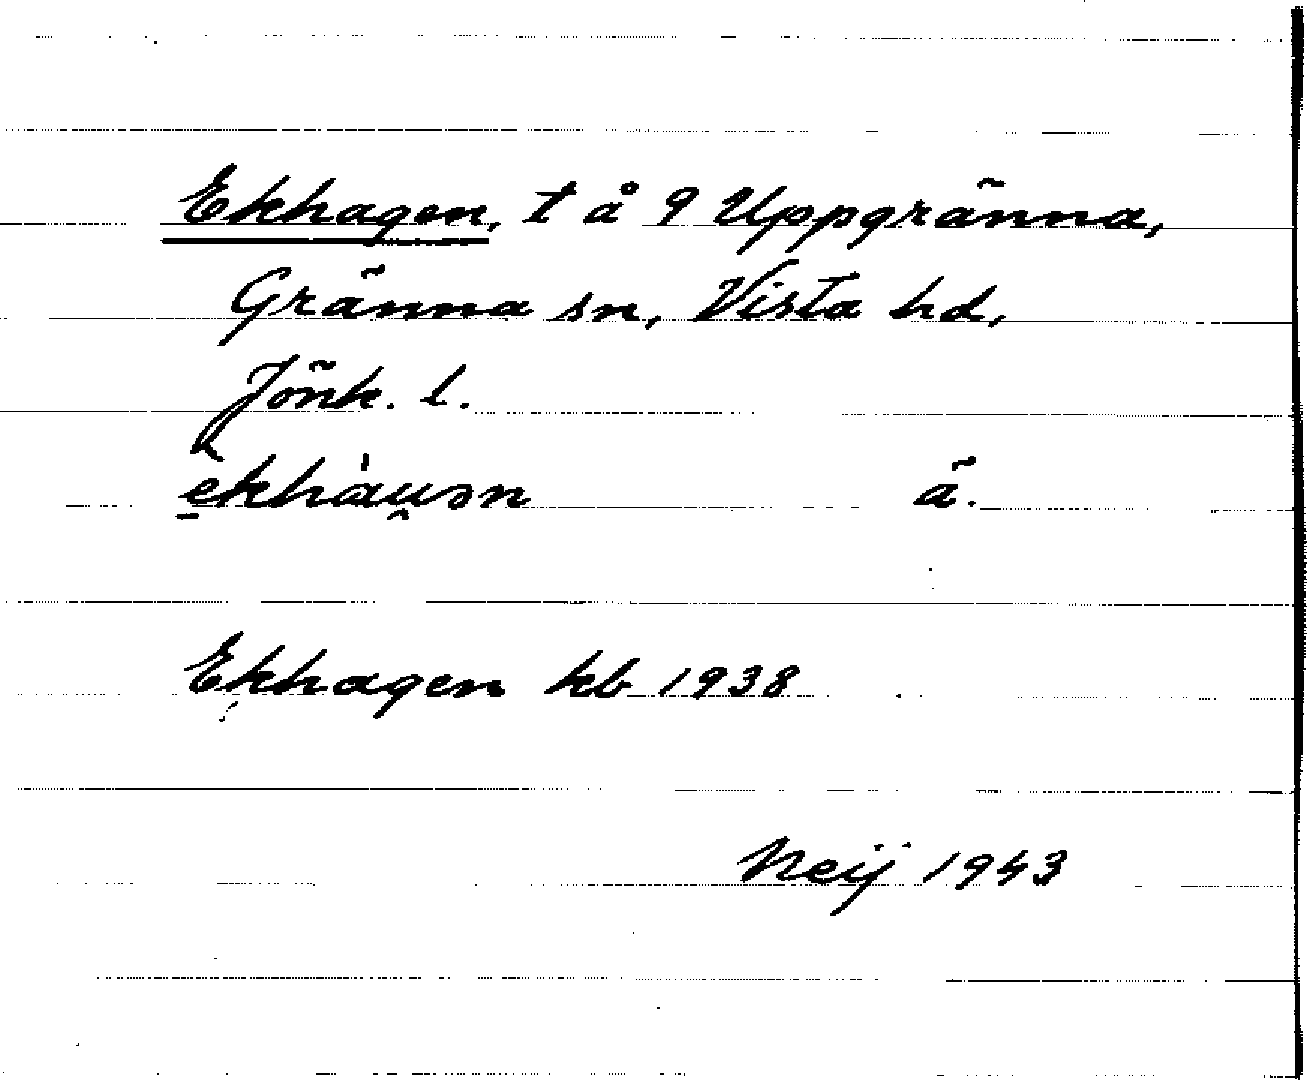 Ekhagen, t å 9 Uppgränna,
Gränna sn, Vista hd,
Jönk. l.
ä.
Ekhagen kb 1938
Neij 1943